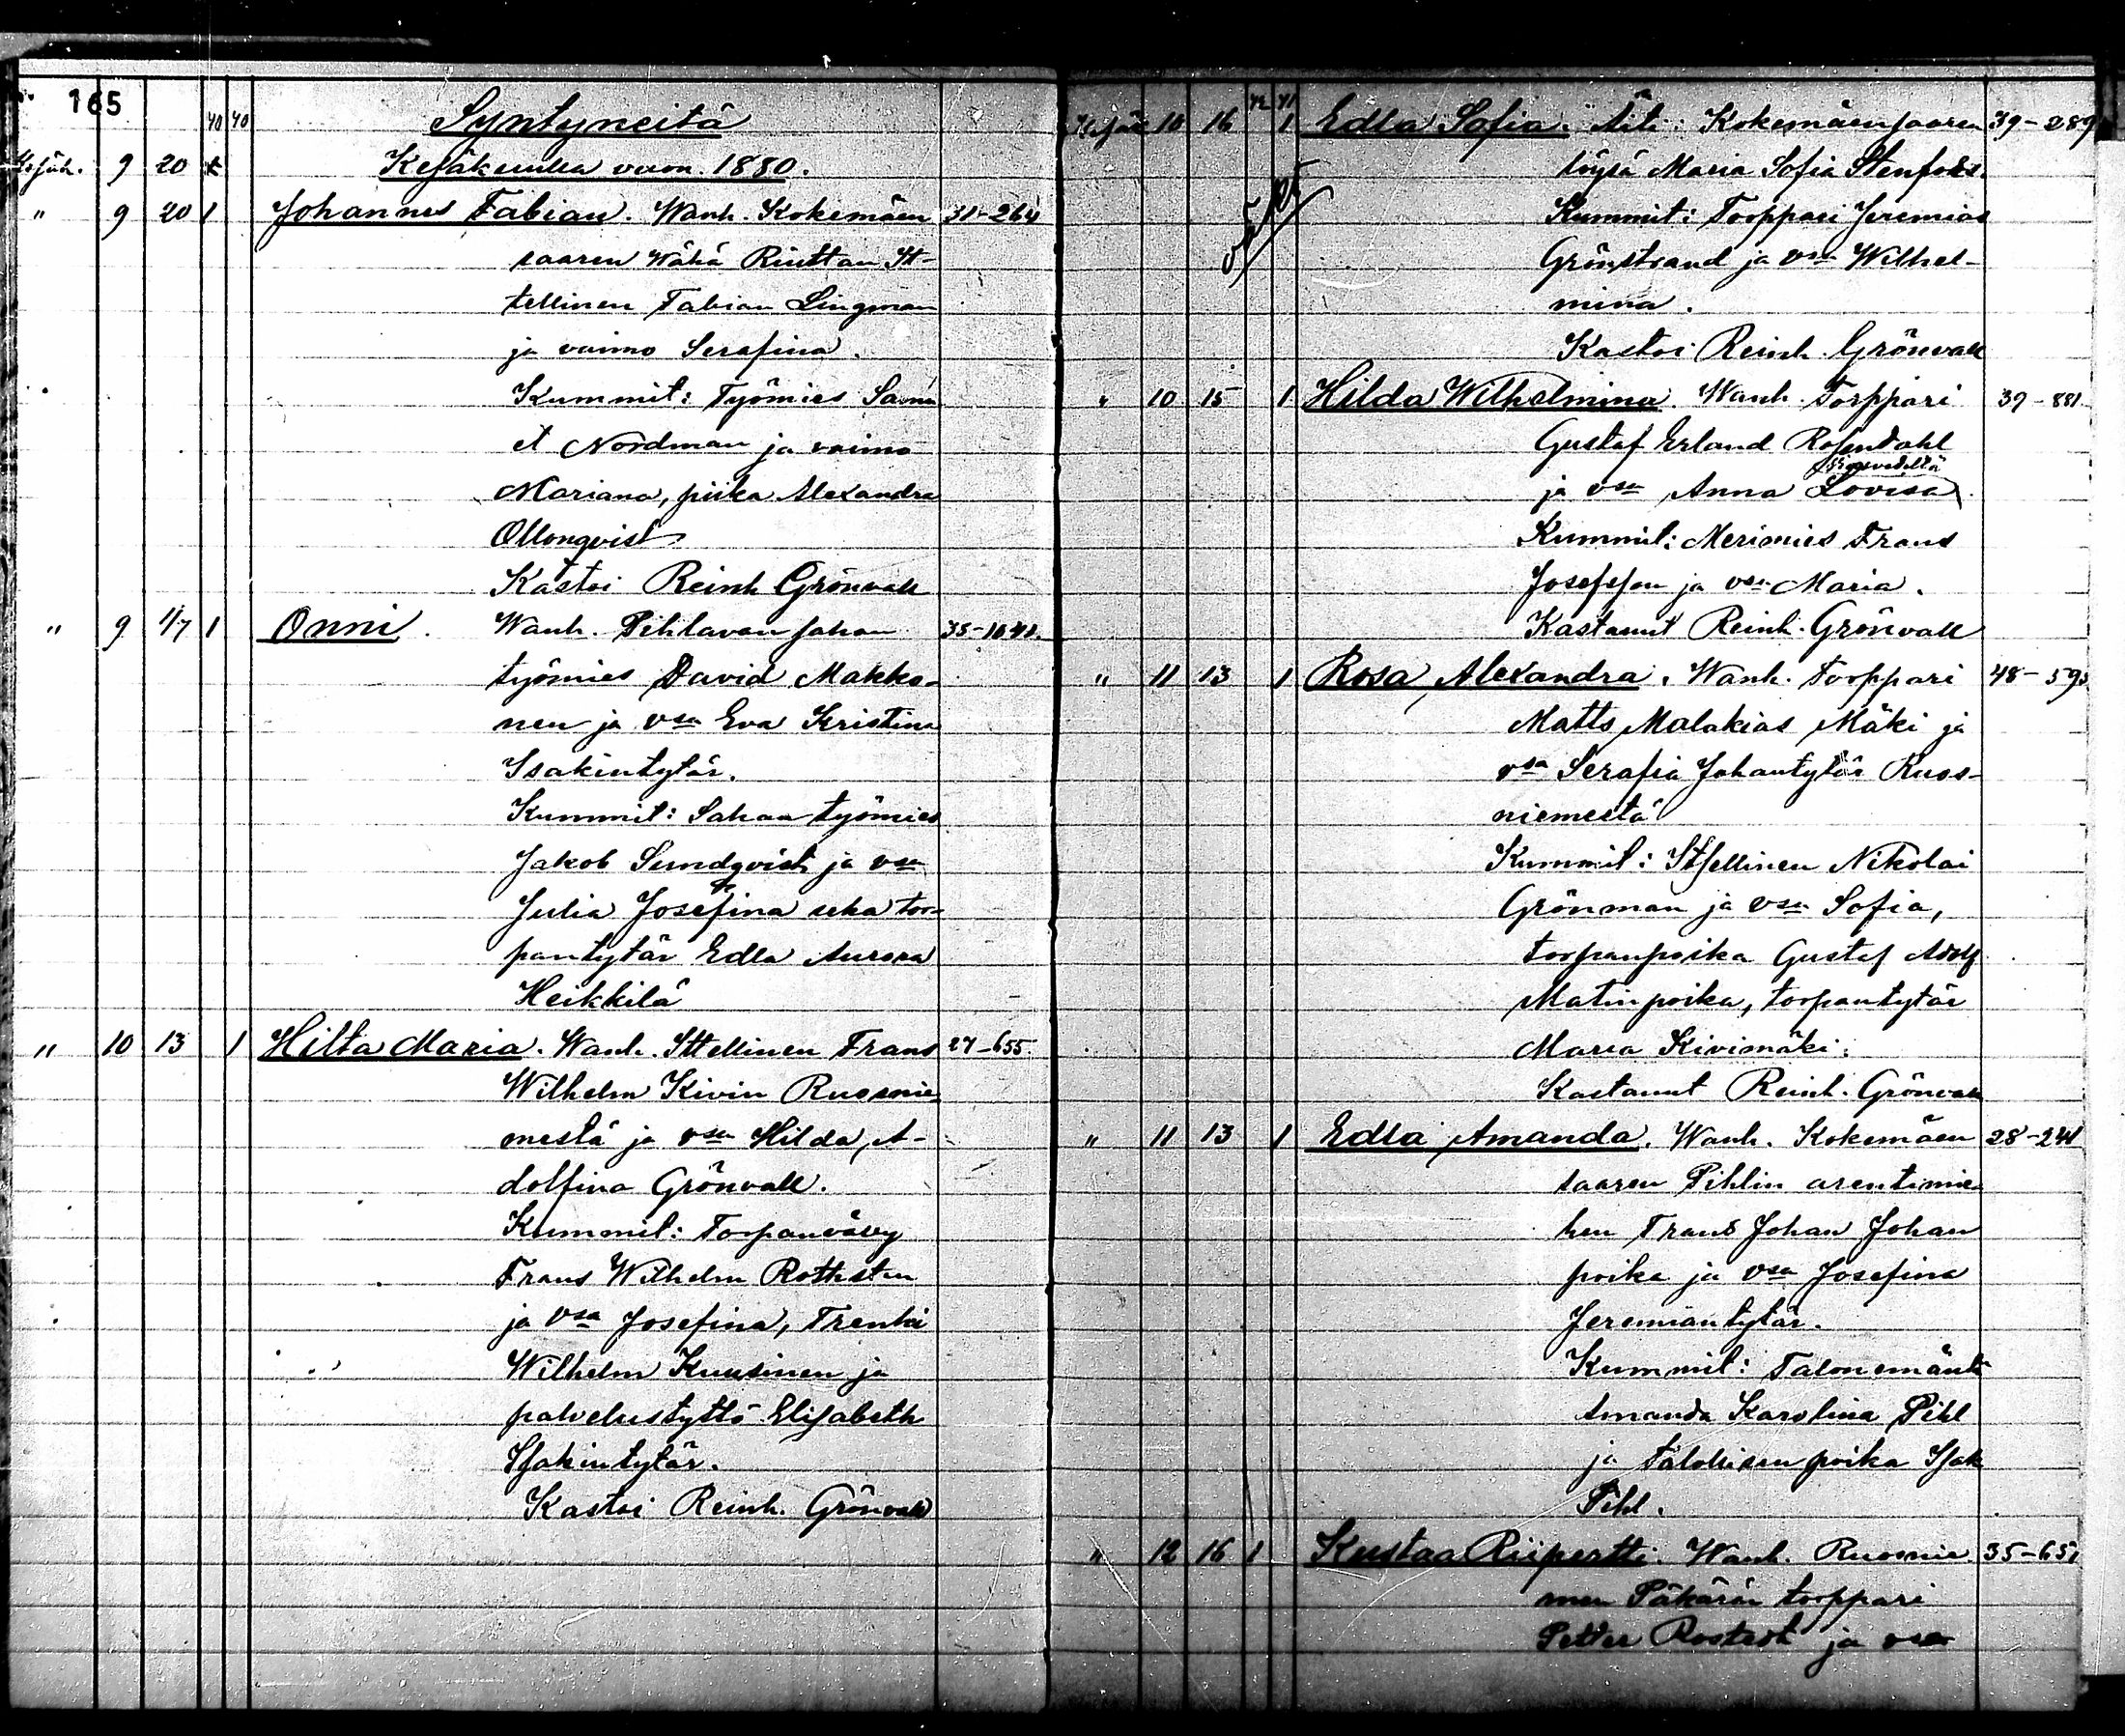 165
40 40 Syntyneitä
Kesäk. 9 20 Kesäkuulla vuon. 1880.
" 9 20 1 Johannes Fabian. Wanh. Kokemäen 31-264
saaren Wähä Riuttan It-
tellinen Fabian Lingman
ja vaimo Serafina.
Kummit: Työmies Samu
el Nordman ja vaimo
Mariana, piika Alexandra
Ollonqvist
Kastoi Reinh Grönvall
" 9 1/7 1 Onni. Wanh. Pihlavan sahan 35-1641.
työmies David Makko-
nen ja vsa Eva Kristina
Isakintytär.
Kummit: Sahan työmies
Jakob Sundqvist ja vsa
Julia Josefina seka tor-
pantytär Edla Aurora
Heikkilä
" 10 13 1 Hilta Maria. Wanh. Ittellinen Frans 27-655.
Wilhelm Kivin Ruosnie-
mestä ja vsa Hilda A-
dolfina Grönvall.
Kummit: Torpanvävy
Frans Wilhelm Rothsten
ja vsa Josefina, Trenki
Wilhelm Kuusinen ja
palvelustyttö Elisabeth
Isakintytär.
Kastoi Reinh. Grönvall
42 41
Kesäk 10 16 1 Edla Sofia. Äiti: Kokemäensaaren 39-289
löysä Maria Sofia Stenfors.
Kummit: Torppari Jeremias
Grönstrand ja vsa Wilhel-
mina.
Kastoi Reinh. Grönvall
" 10 15 1 Hilda Wilhelmina. Wanh. Torppari 39-881.
Gustaf Erland Rosendahl
ja vsa Anna Lovisa
Kummit: Merimies Frans
Josefsson ja vsa Maria.
Kastanut Reinh. Grönvall
" 11 13 1 Rosa Alexandra. Wanh. Torppari 48-595
Matts Malakias Mäki ja
vsa Serafia Johantytär Ruos-
niemestä
Kummit: Itsellinen Nikolai
Grönman ja vsa Sofia,
torpanpoika Gustaf Adolf
Matinpoika, torpantytär
Maria Kivimäki.
Kastanut Reinh. Grönvall
" 11 13 1 Edla Amanda. Wanh. Kokemäen 28-241
saaren Pihlin arentimie-
hen Frans Johan Johan
poika ja vsa Josefina
Jeremiantytär.
Kummit: Talonemäntä
Amanda Karolina Pihl
ja talollisen poika Isak
Pihl.
" 12 16 1 Kustaa Riipertti. Wanh. Ruosnie 35-651
men Päkärän torppari
Petter Rostedt ja vsa